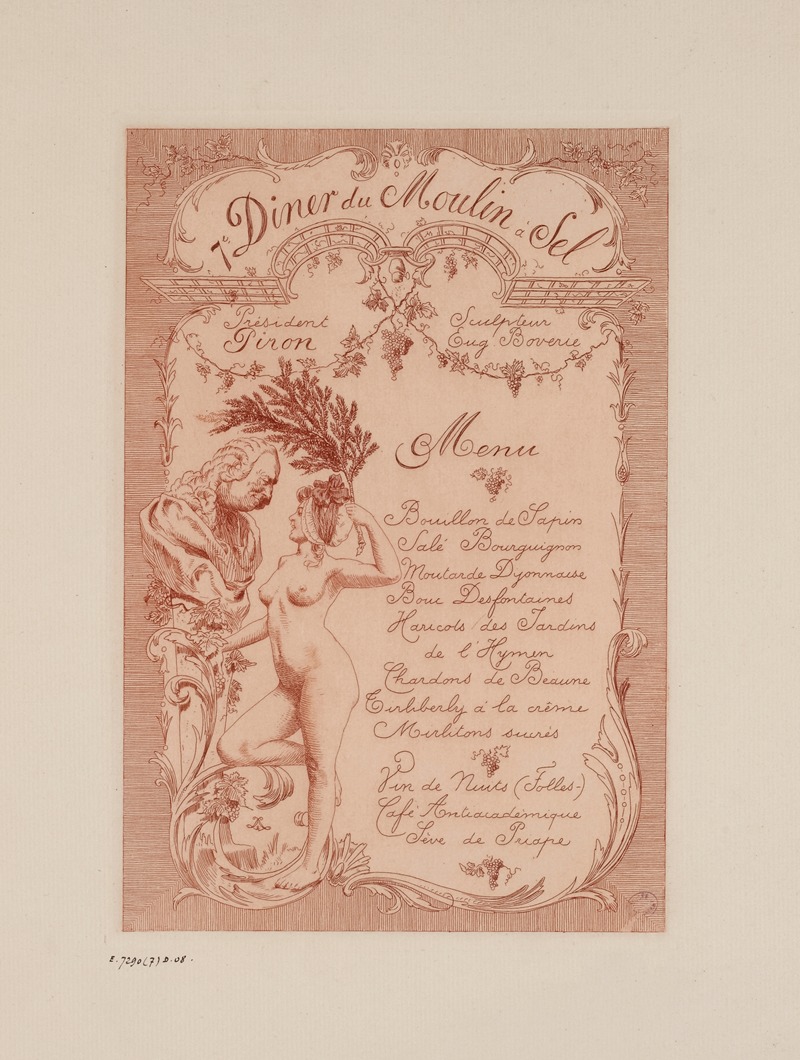 7e Diner du Moulin à Sel
Président
Piron
Sculpteur
Eug Boverie
Menu
Bouillon de Sapin
Salé Bourguignon
Moutarde Dyonnaise
Bouc Desfontaines
Haricots des Jardins
de l'Hymen
Chardons de Beaune
Tirliberly à la crême
Mirlitons sucrés
Vin de Nuits (Folles-)
Café Antiacadémique
Sève de Priape
E. 7290(7) D. 08.